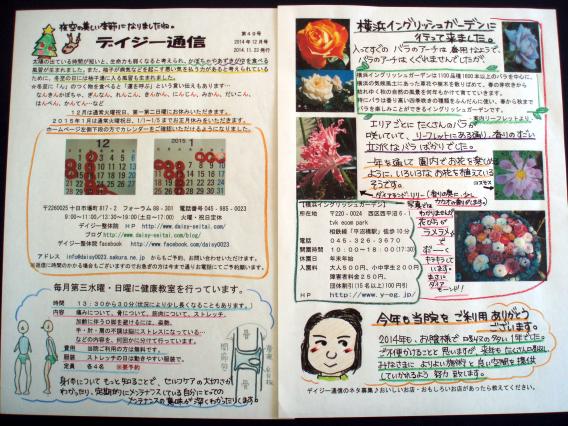 夜空の美しい季節になりましたね。
デイジー通信
第49号
2014年12月号
2014.11.22発行
太陽の出ている時間が短いと、生命力も弱くなると考えられ、かぼちゃやあずきがゆを食べる
風習が生まれました。また、柚子が病気などを起こす悪い気を払う力があると考えられている
ために、冬至の日には柚子湯に入る風習も生まれました。
☆冬至に「ん」のつく物を食べると「運を呼ぶ」という言い伝えもあります…
なんきんかぼちゃ、ぎんなん、れんこん、きんかん、にんじん、みかん、だいこん、
はんぺん、かんてん…など
12月は通常火曜祝日、第一第二日曜にお休みいただきます。
2015年1月は通常火曜祝日、1/1～1/5までお正月休みをいただきます。
ホームページ左側下段の方でカレンダーをご確認いただけるようになりました。
12
2015 1
〒2260025 十日市場町817-2 フォーラム88-301 電話番号 045-985-0023
9:00～11:00/13:30～19:00(土日～17:00) 火曜・祝日定休
デイジー整体院 HP http://www.daisy-seitai.com/
ブログ http://www.daisy-seitai.com/blog/
デイジー整体院 facebook http://www.facebook.com/daisy0023
アドレス info@daisy0023.sakura.ne.jp からもご予約、お問い合わせいただけます。
※返信に時間のかかる場合もございますのでお急ぎの方は今まで通りお電話にてご予約願います。
毎月第三水曜・日曜に健康教室を行っています。
時間 13:30から30分(状況により少し長くなることもあります。)
内容 痛みについて、骨について、筋肉について、ストレッチ、
加齢に伴うO脚を避けるには、姿勢、
手・肘・肩の不調は脳にストレスになっている…
などの内容を、何回かに分けて行います。
費用 当院ご利用の方は無料です。
服装 ストレッチの日は動きやすい服装で。
定員 各4名 ※要予約
身体について もっと知ることで、セルフケアの大切さが
わかったり、定期的にメンテナンスしている自分にとっての
メンテナンスの意味が深くわかったりします。
横浜イングリッシュガーデンに
行って来ました。
入ってすぐの バラのアーチは 春用だそうで、
バラのアーチは くぐれませんでしたが、
横浜イングリッシュガーデンは1100品種1600本以上のバラを中心に、
横浜の気候風土にあった草花や樹木を散りばめて、春の芽吹きから
秋わく秋の和の自然の彩を間近に何度も行われます。
特にバラは香り高い四季咲きの種類をふんだんに使い、春から秋まで
バラを楽しむことができるイングリッシュガーデンです。
エリアごとに たくさんのバラが
咲いていて、リーフレットにある通り、香りのすごい
立派なバラばかりでした。
一年を通して 園内でお花を楽しめる
ように、いろいろなお花を植えている
そうです。
コスモス
ダイアモンド・リリー
【横浜イングリッシュガーデン】
所在地 〒220-0024 西区西平沼6-1
tvk ecom park
相鉄線「平沼橋駅」徒歩10分
電話 045-326-3670
開園時間 10:00～18:00(17:30)
休業日 年末年始
入園料 大人500円、小中学生200円
障害者手帳200円
団体割引(15名以上100円引)
HP http://www.y-eg.jp/
わかりませんが
花びらが
ラメラメで
キラキラして
います。
まさに
ダイア
モンド!!
今年も当院をご利用ありがとう
ございます。
2014年も、お陰様で口コミの多い1年でした。
ご不便かけることと思いますが、来年もたくさん口コミ
みなさまに よりよい施術と 良い空間を提供
していかれるよう 努力致します。
デイジー通信のネタ募集♪おいしいお店・おもしろいお店があったら教えてください。